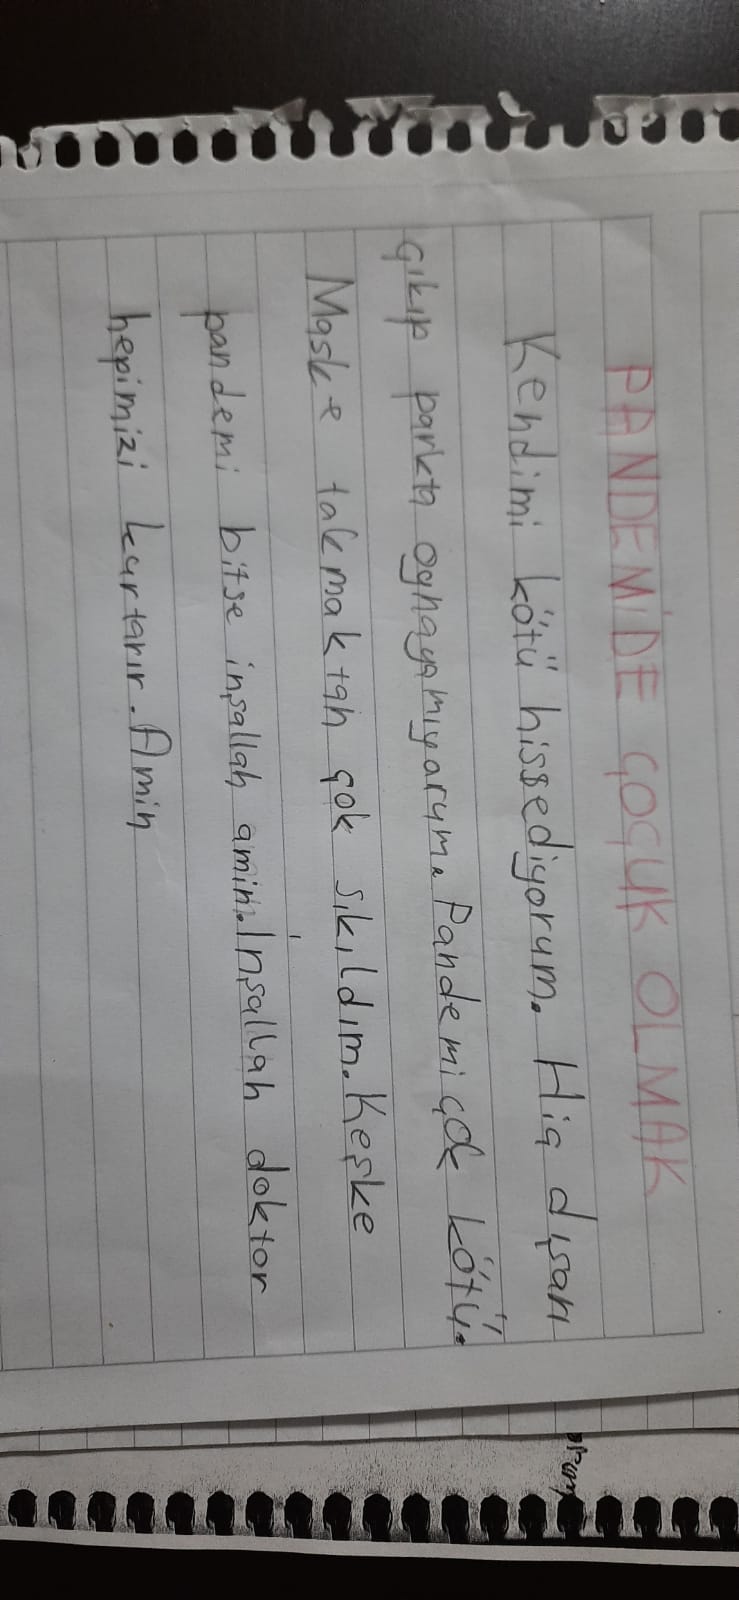 PANDEMİDE ÇOÇUK OLMAK
Kendimi kötü hissediyorum. Hiç dışarı
çıkıp parkta oynayamıyorum. Pandemi çok kötü.
Maske takmaktan çok sıkıldım. Keşke
pandemi bitse inşallah amin. İnşallah doktor
hepimizi kurtarır. Amin